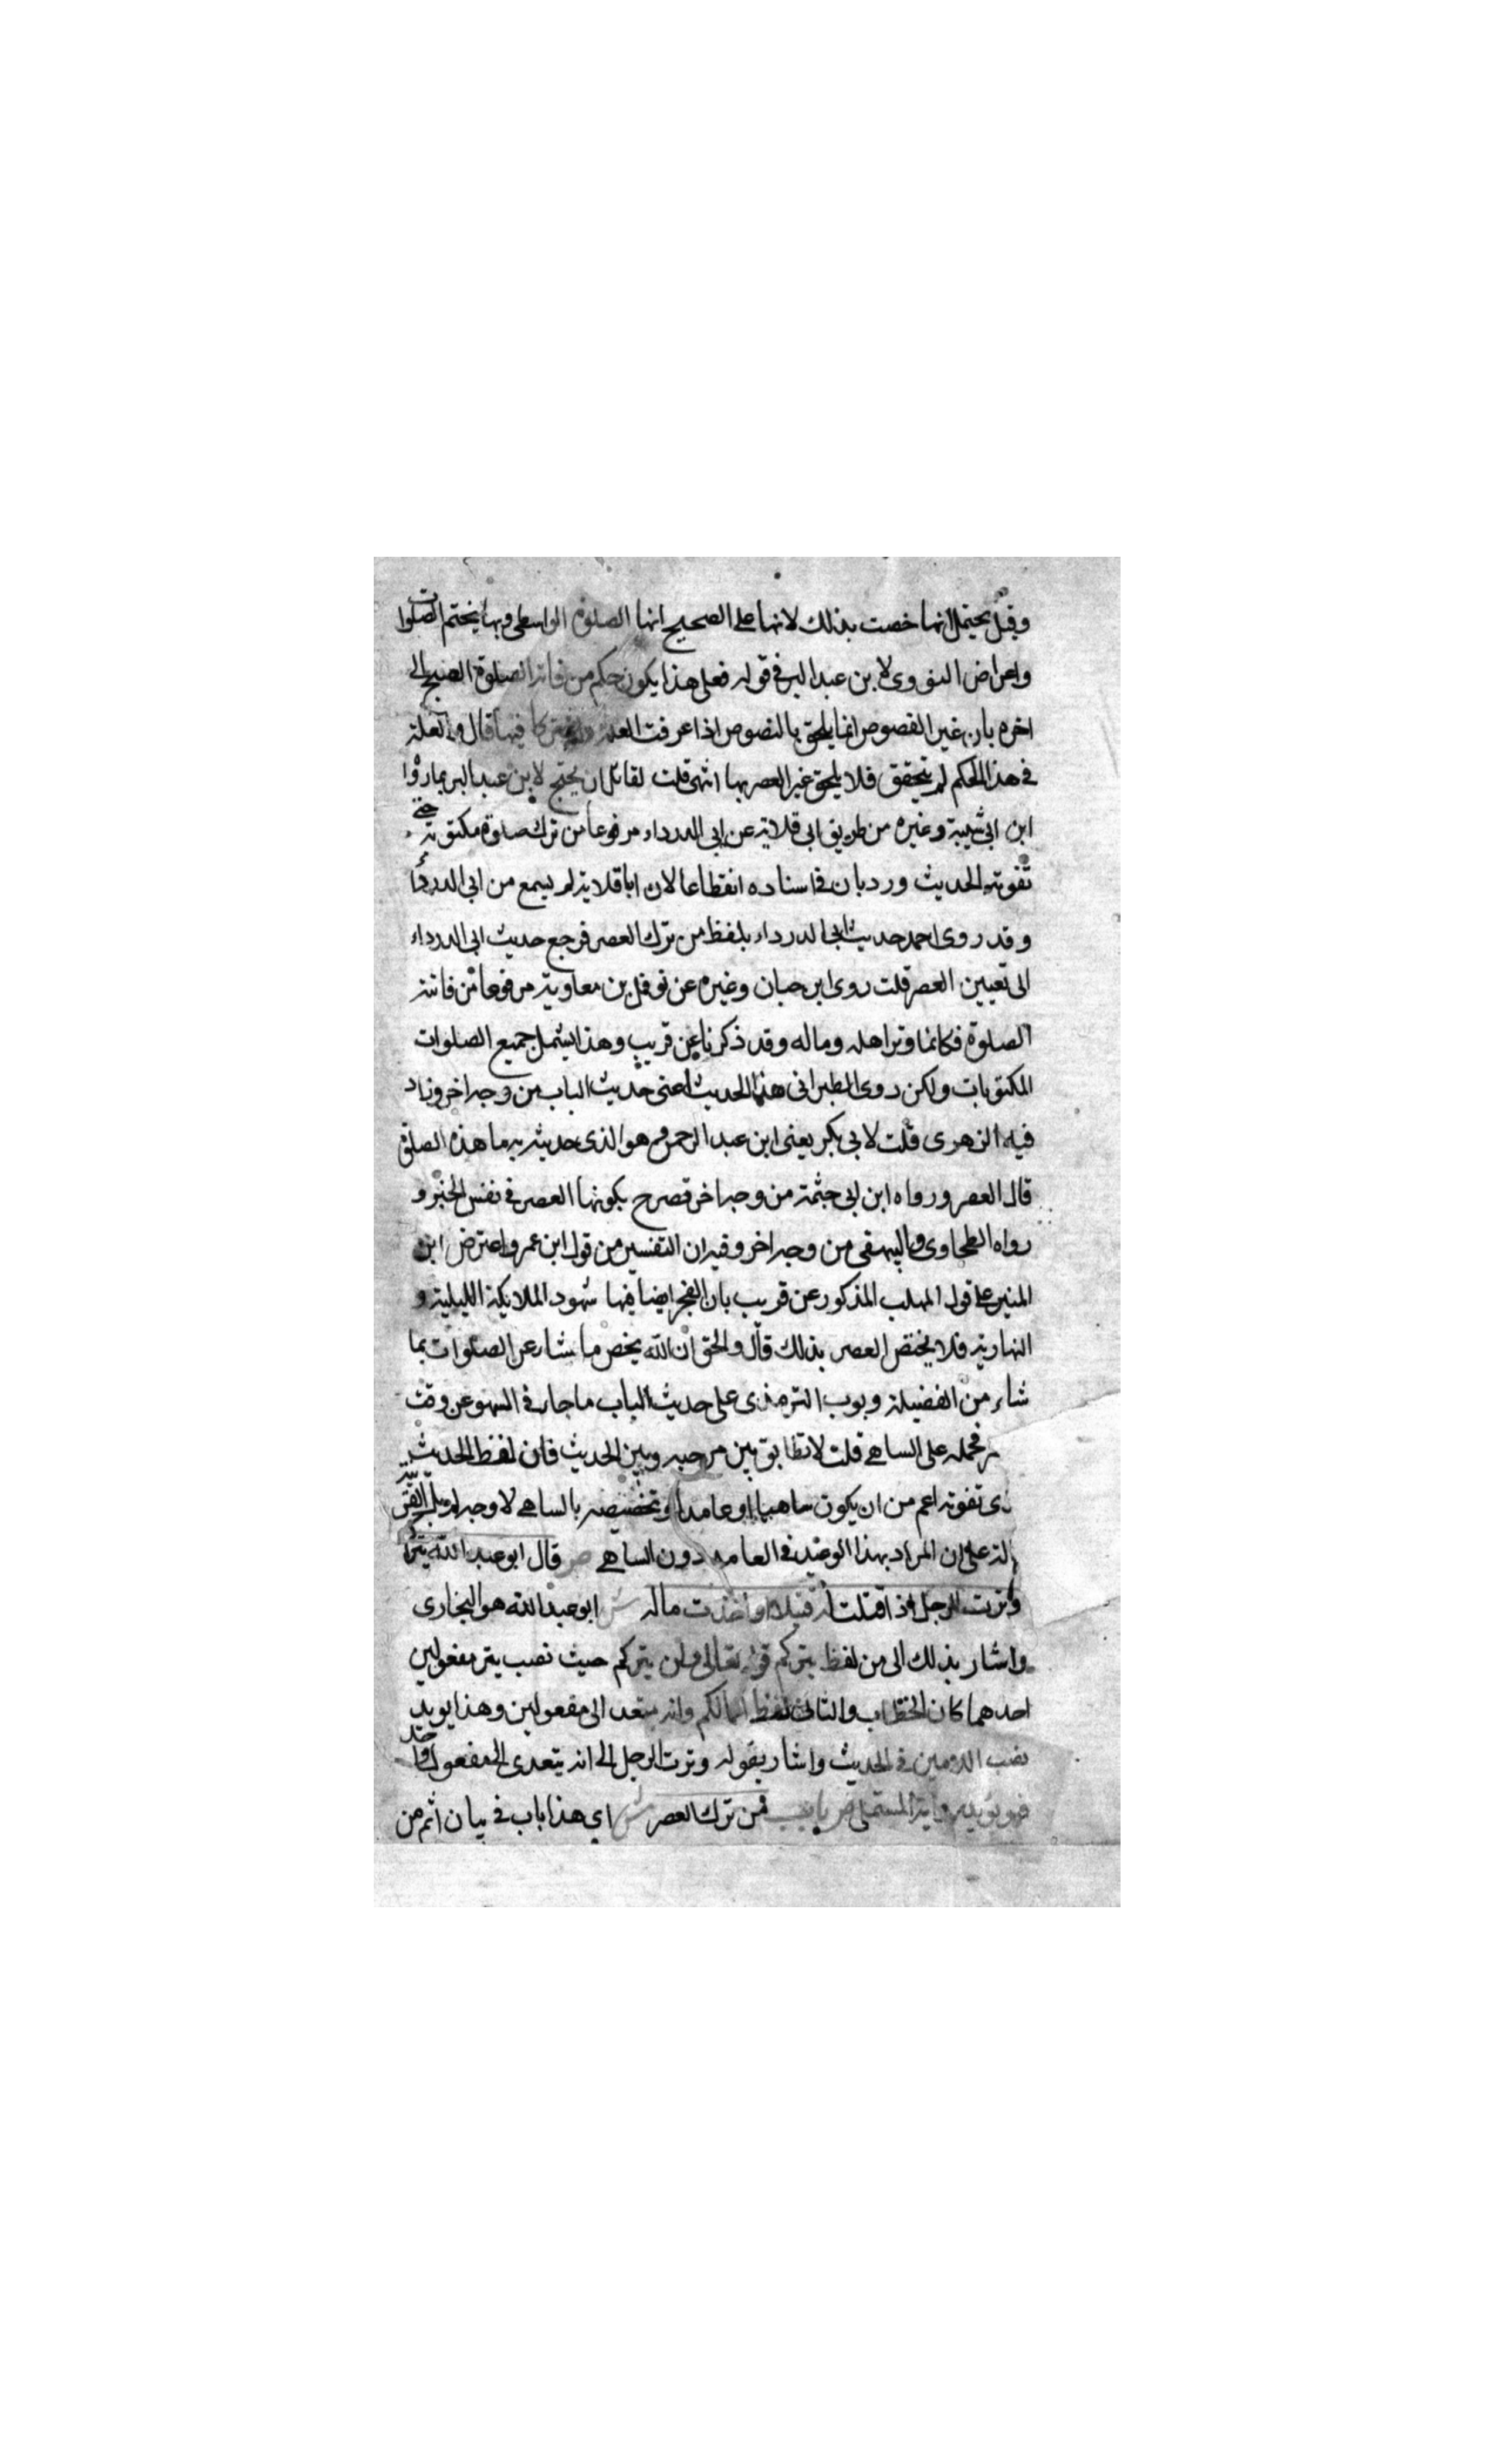 وقيل يحتمل انها خصت بذلك لانها على الصحيح انها الصلوة الواسطى وبها يختم الصلوات
واعراض النووى لابن عبد البر فى قوله فعلى هذا يكون حكم من فاته الصلوة الصبح الى
اخره بان غير المنصوص انما يلحق بالنصوص اذا عرفت العلة واشتركا فيها قال والعلة
فى هذا الحكم لم يتحقق فلا يلحق غير العصر بها انتهى قلت لقائل ان يحتج لابن عبد البر بما رواه
ابن ابى شيبة وغيره من طريق ابى قلابة عن ابى الدرداء مرفوعا من ترك صلوة مكتوبة حتى
تفوته الحديث ورد بان فى اسناده انقطاعا لان ابا قلابة لم يسمع من ابى الدرداء
وقد روى احمد حديث ابى الدرداء بلفظ من ترك العصر فرجع حديث ابى الدرداء
الى تعيين العصر قلت روى ابن حبان وغيره عن نوفل بن معاوية مرفوعا من فاتته
الصلوة فكانما وتر اهله وماله وقد ذكرنا عن قريب وهذا يشمل جميع الصلوات
المكتوبات ولكن روى الطبرانى هذا الحديث اعنى حديث الباب من وجه اخر وزاد
فيه الزهرى قلت لابى بكر يعنى ابن عبد الرحمن وهو الذى حديثه به ما هذه الصلوة
قال العصر ورواه ابن ابى حثمة من وجه اخر فصرح بكونها العصر فى نفس الخبر و
رواه الطحاوى والبيهقى من وجه اخر وفيه ان التفسير من قول ابن عمر واعترض ابن
المنير على قول المهلب المذكور عن قريب بان الفجر ايضا فيها شهود الملايكة الليلية و
النهارية فلا يختص العصر بذلك قال والحق ان الله يخص ما شاء عن الصلوات بما
شاء من الفضيلة وبوب الترمذى على حديث الباب ما جاء فى السهو عن وقت
فحمله على الساهى قلت لا تطابق بين ترجمته وبين الحديث فان لفظ الحديث
تفوته اعم من ان يكون ساهيا او عامدا وتخصيصه بالساهى لا وجه له بل القرينة
دالة على ان المراد بهذا الوعيد فى العامد دون الساهى ص قال ابو عبد الله يتركم
وترت الرجل اذا اقتلت له قتيلا او اخذت ماله ش ابو عبد الله هو البخارى
واشار بذلك الى من لفظ يتركم قوله تعالى ولن يتركم حيث نصب يتر مفعولين
احدهما كان الخطاب والثانى لفظ اعمالكم وانه يتعد الى مفعولين وهذا يويد
نصب اللامين فى الحديث واشار بقوله وترت الرجل الى انه يتعدى الى مفعول واحد
فهو يؤيد رواية المستملى ص باب من ترك العصر ش اى هذا باب فى بيان اثم من